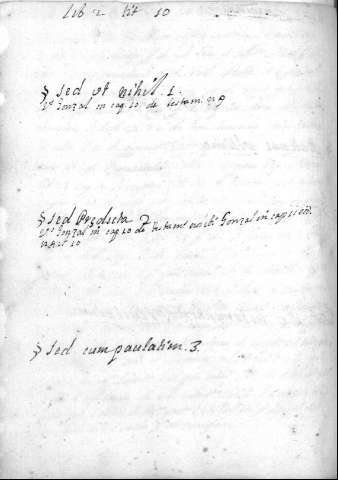 Lib 2 tit 10
§ sed ut nihil. 1.
Vᵉ Gonzal in cap 10 de testam. n 9
§ sed Prædicta 2
Vᵉ Gonzal in cap 10 de testamᵗ Gonzal in cap
§ sed cum paulatim. 3.